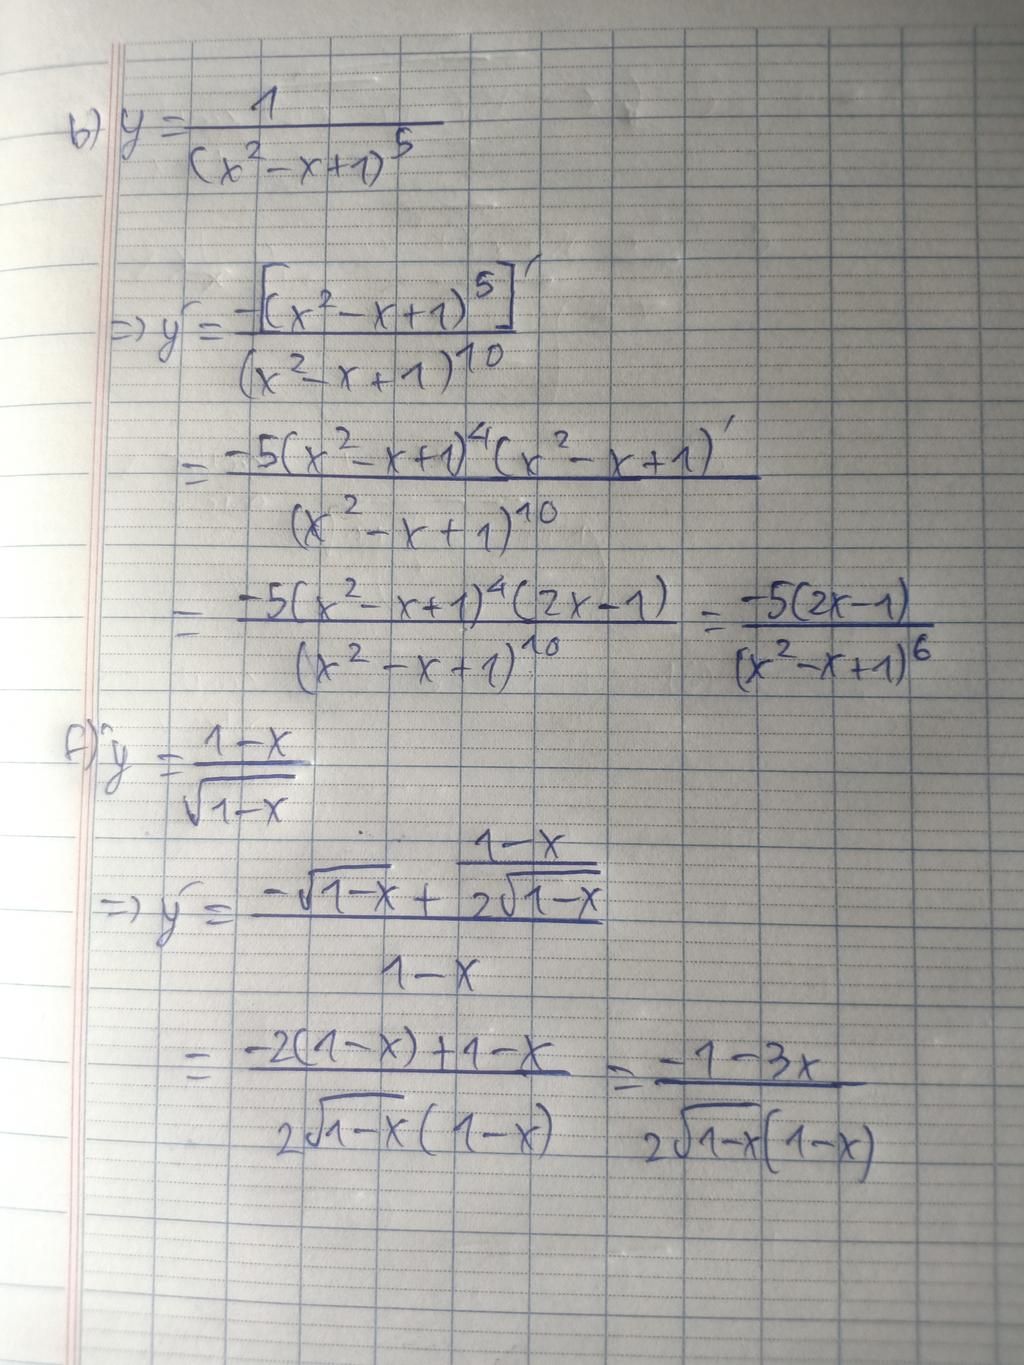 b) y = 1/(x² - x + 1)⁵
=> y' = -[(x² - x + 1)⁵]'/(x² - x + 1)¹⁰
= -5(x² - x + 1)⁴(x² - x + 1)'/(x² - x + 1)¹⁰
= -5(x² - x + 1)⁴(2x - 1)/(x² - x + 1)¹⁰ = -5(2x - 1)/(x² - x + 1)⁶
f) y = (1 - x)/√(1 - x)
=> y' = (-√(1 - x) + (1 - x)/(2√(1 - x)))/(1 - x)
= (-2(1 - x) + 1 - x)/(2√(1 - x)(1 - x)) = (-1 - 3x)/(2√(1 - x)(1 - x))